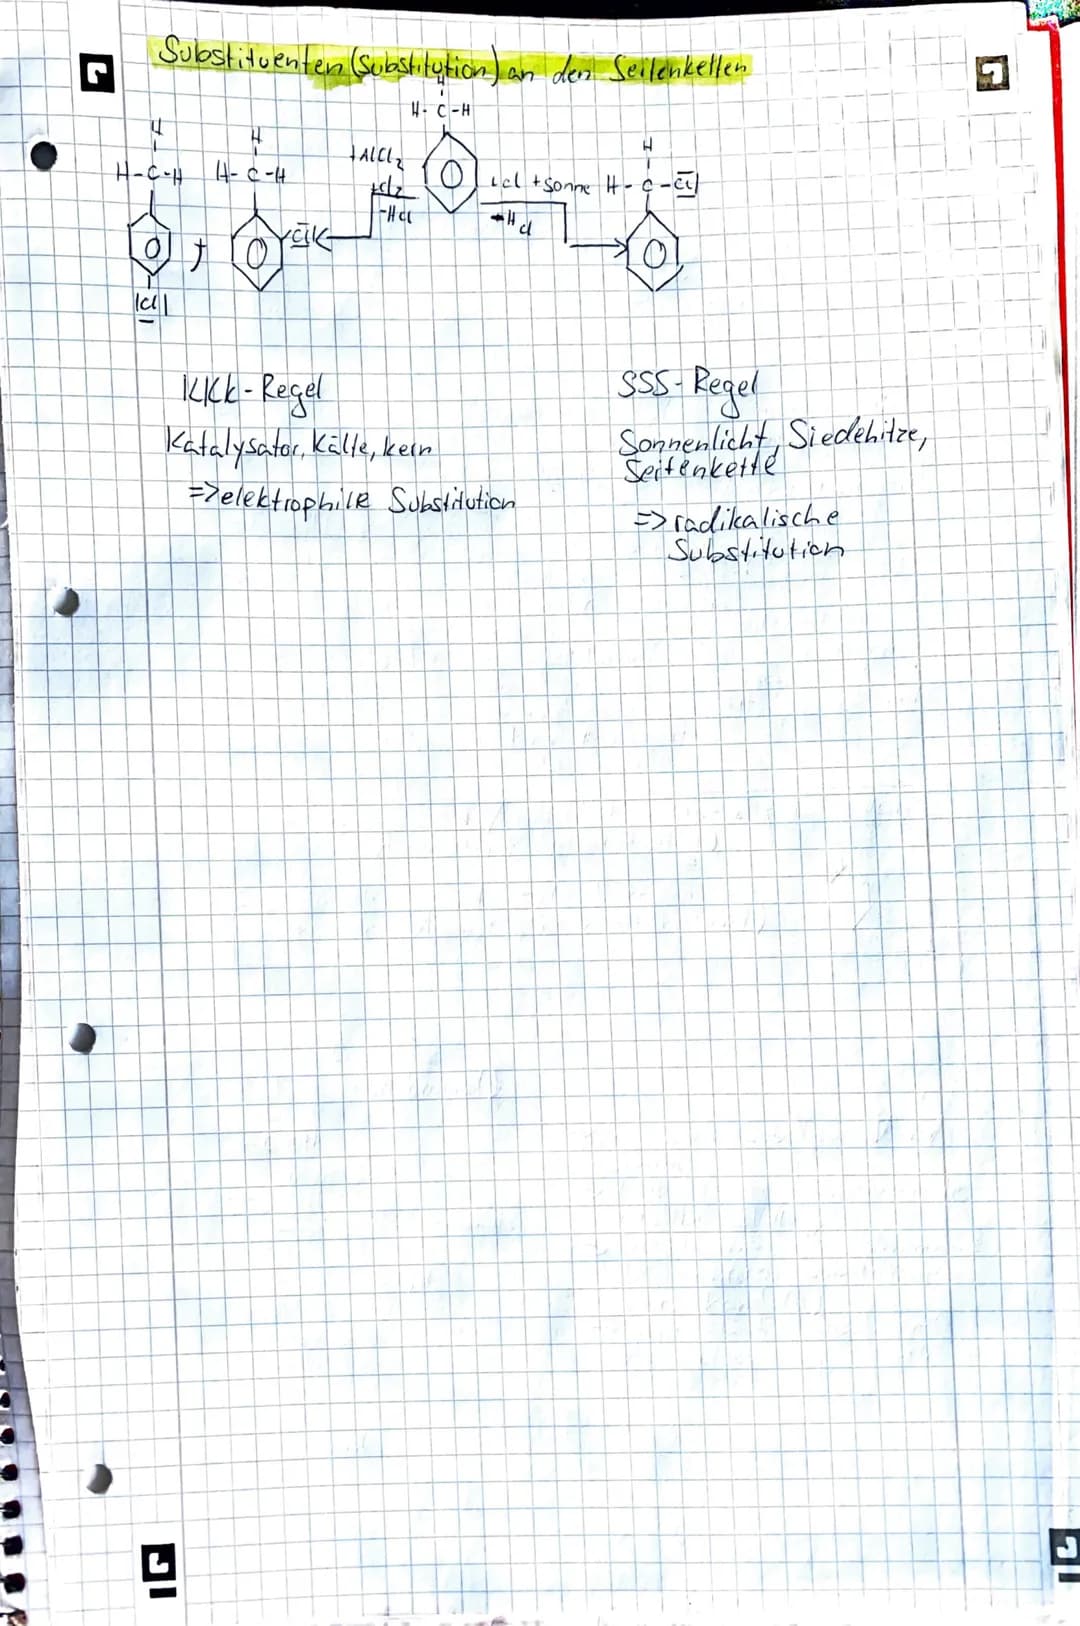 Substituenten (Substitution) an den Seitenketten
H
H-C-H
H
H-C-H
H
H-C-H
+AlCl2
+Cl2
-HCl
+cl +Sonne
-Hcl
H
H-C-Cl
Cl
|cl|
KKK-Regel
Katalysator, Kälte, kern
=> elektrophile Substitution
SSS-Regel
Sonnenlicht, Siedehitze,
Seitenkette
=> radikalische
Substitution